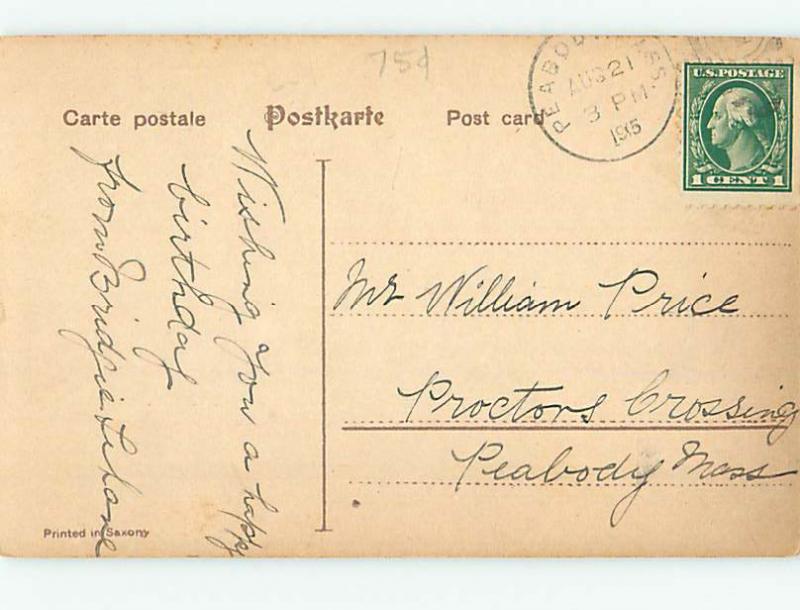 75¢
Carte postale Postkarte Post card
PEABODY, MASS.
AUG 21
3 PM
1915
U.S. POSTAGE
1 CENT 1
Wishing You a happy
birthday
from Bridgie Lehane
Mr William Price
Proctors Crossing
Peabody Mass
Printed in Saxony